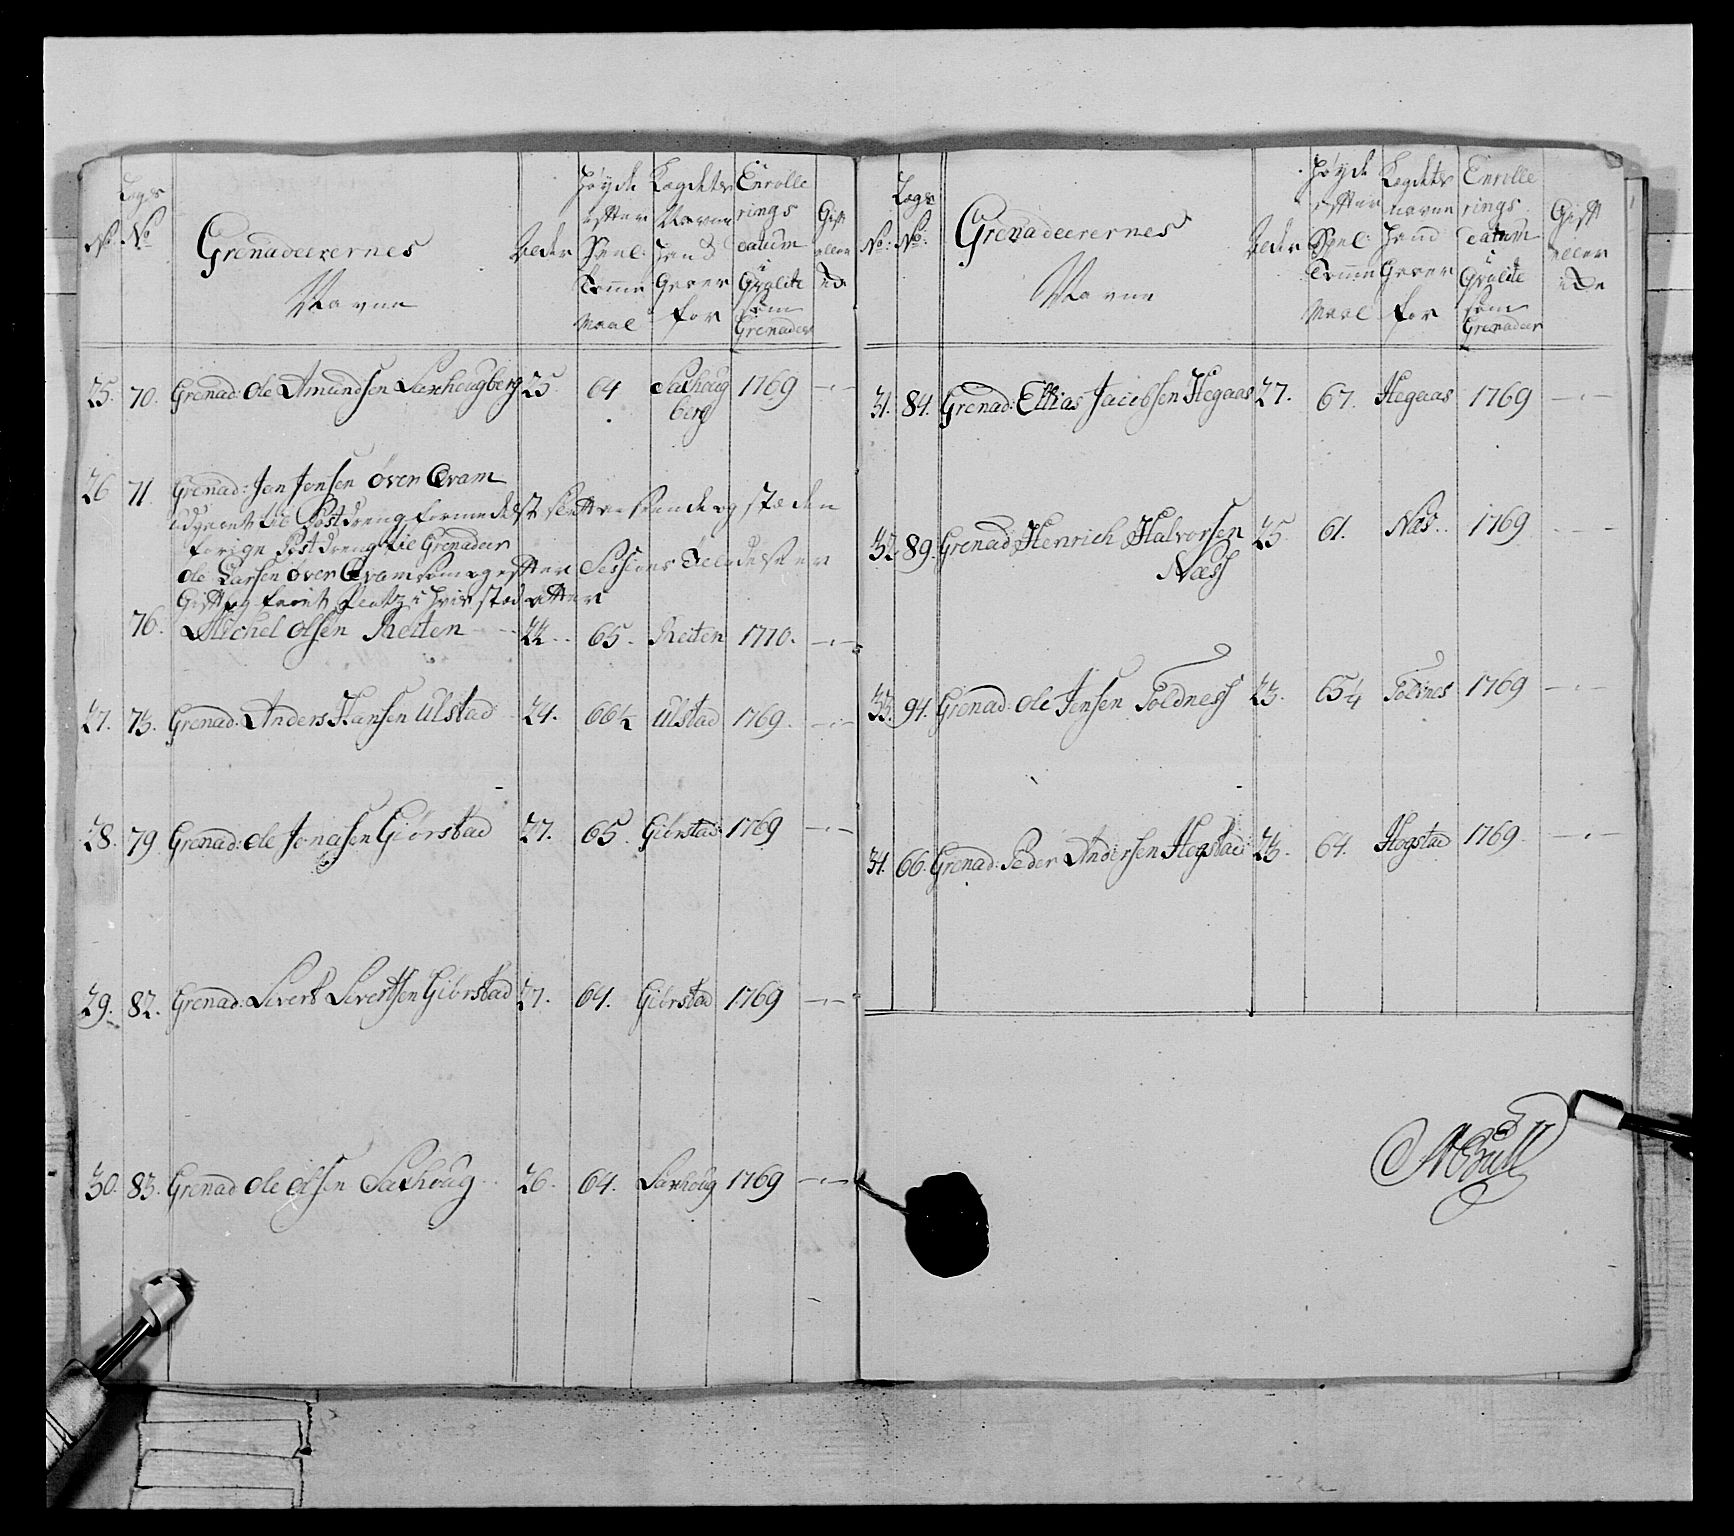 No: Lægs No: Grenadeerernes Navne Alder Høyde efter Speel: Tomme Maal Lægdets Navne hand Geser for Enrolle rings datum i Qvalite som Grenadeer Gift eller Ei
25. 70. Grenad: Ole Amundsen Saxhougberg 25 64 Saxhoug berg 1769 — . —
26 71. Grenad: Jon Jonsen Över Qvam
forrige Postdreng til Grenadeer
Ole Larsen över Qvam som efter Sessions
76. Michel Olsen Reiten 22 65. Reiten 1770. — . —
27. 73. Grenad: Anders Hansen Ulstad 24. 66½ Ulstad 1769. — . —
28. 79 Grenad: Ole Jonasen Giörstad 27. 65. Giörstad 1769 — . —
29. 82. Grenad: Sivert Sivertsen Giörstad 27. 64. Giörstad 1769 — . —
30. 83. Grenad Ole Olsen Saxhoug 26. 64. Saxhoug 1769 — . —
No: Lægs No: Grenadeerernes Navne Alder Høyde efter Spel: Tomme Maal Lægdets navne hand Geser for Enrolle rings datum i Qvalite som Grenadeer Gift eller
31. 84. Grenad: Ellias Jacobsen Hegaas 27. 67. Hegaas 1769 — . —
32. 89. Grenad: Henrich Halvorsen Næss 25. 61. Næs. 1769 — . —
33. 94. Grenad: Ole Jensen Foldness 23. 65¼ Foldnes 1769 — . —
34. 66. Grenad: Peder Andersen Hogstad 23. 64. Hogstad 1769. — . —